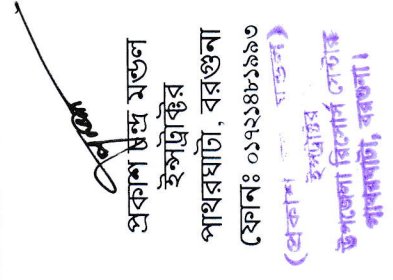 প্রকাশ চন্দ্র মন্ডল
ইন্সট্রাক্টর
পাথরঘাটা, বরগুনা
ফোন: ০১৭২১৪৮১৯৯৩
(প্রকাশ মন্ডল)
ইন্সট্রাক্টর
উপজেলা রিসোর্স সেন্টার
পাথরঘাটা, বরগুনা।